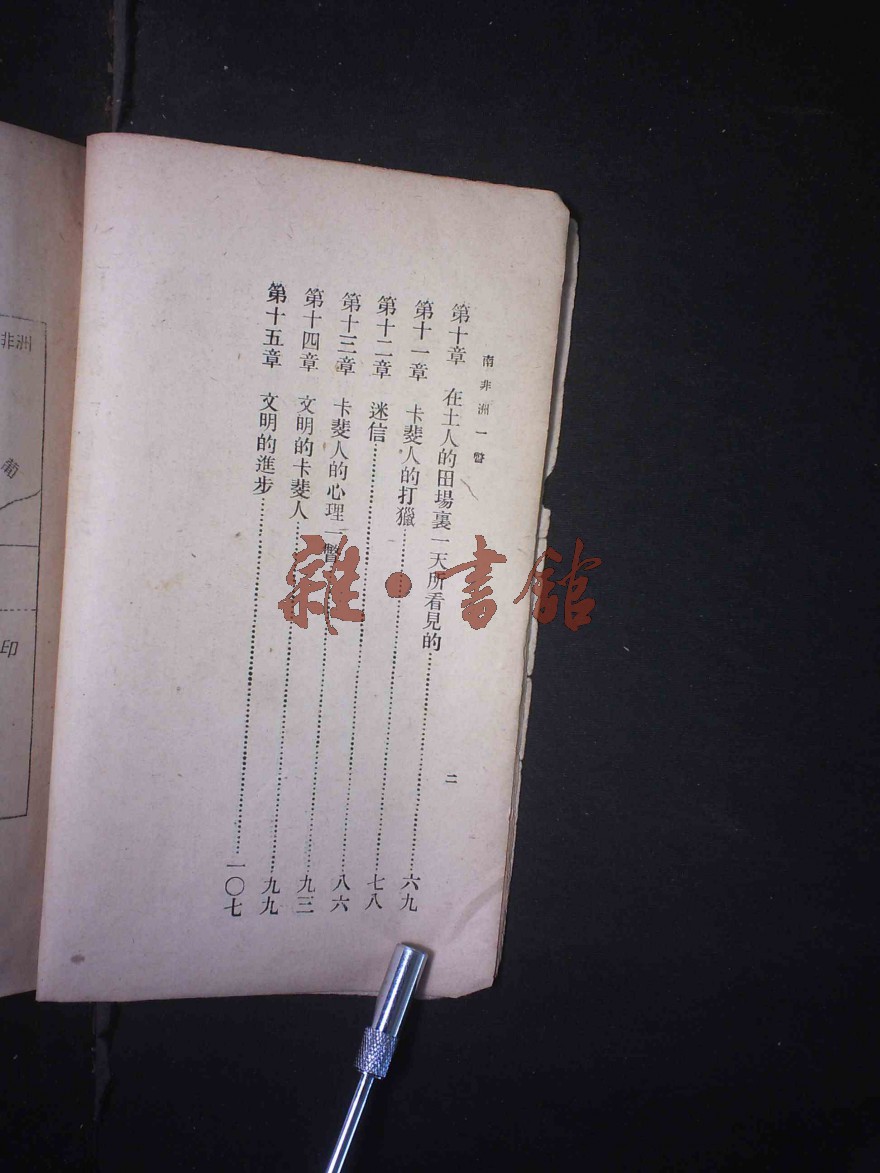 南非洲一瞥
二
第十章 在土人的田場裏一天所看見的……六九
第十一章 卡斐人的打獵……七八
第十二章 迷信……八六
第十三章 卡斐人的心理一瞥……九三
第十四章 文明的卡斐人……九九
第十五章 文明的進步……一〇七
雜·書館
非洲
葡
印